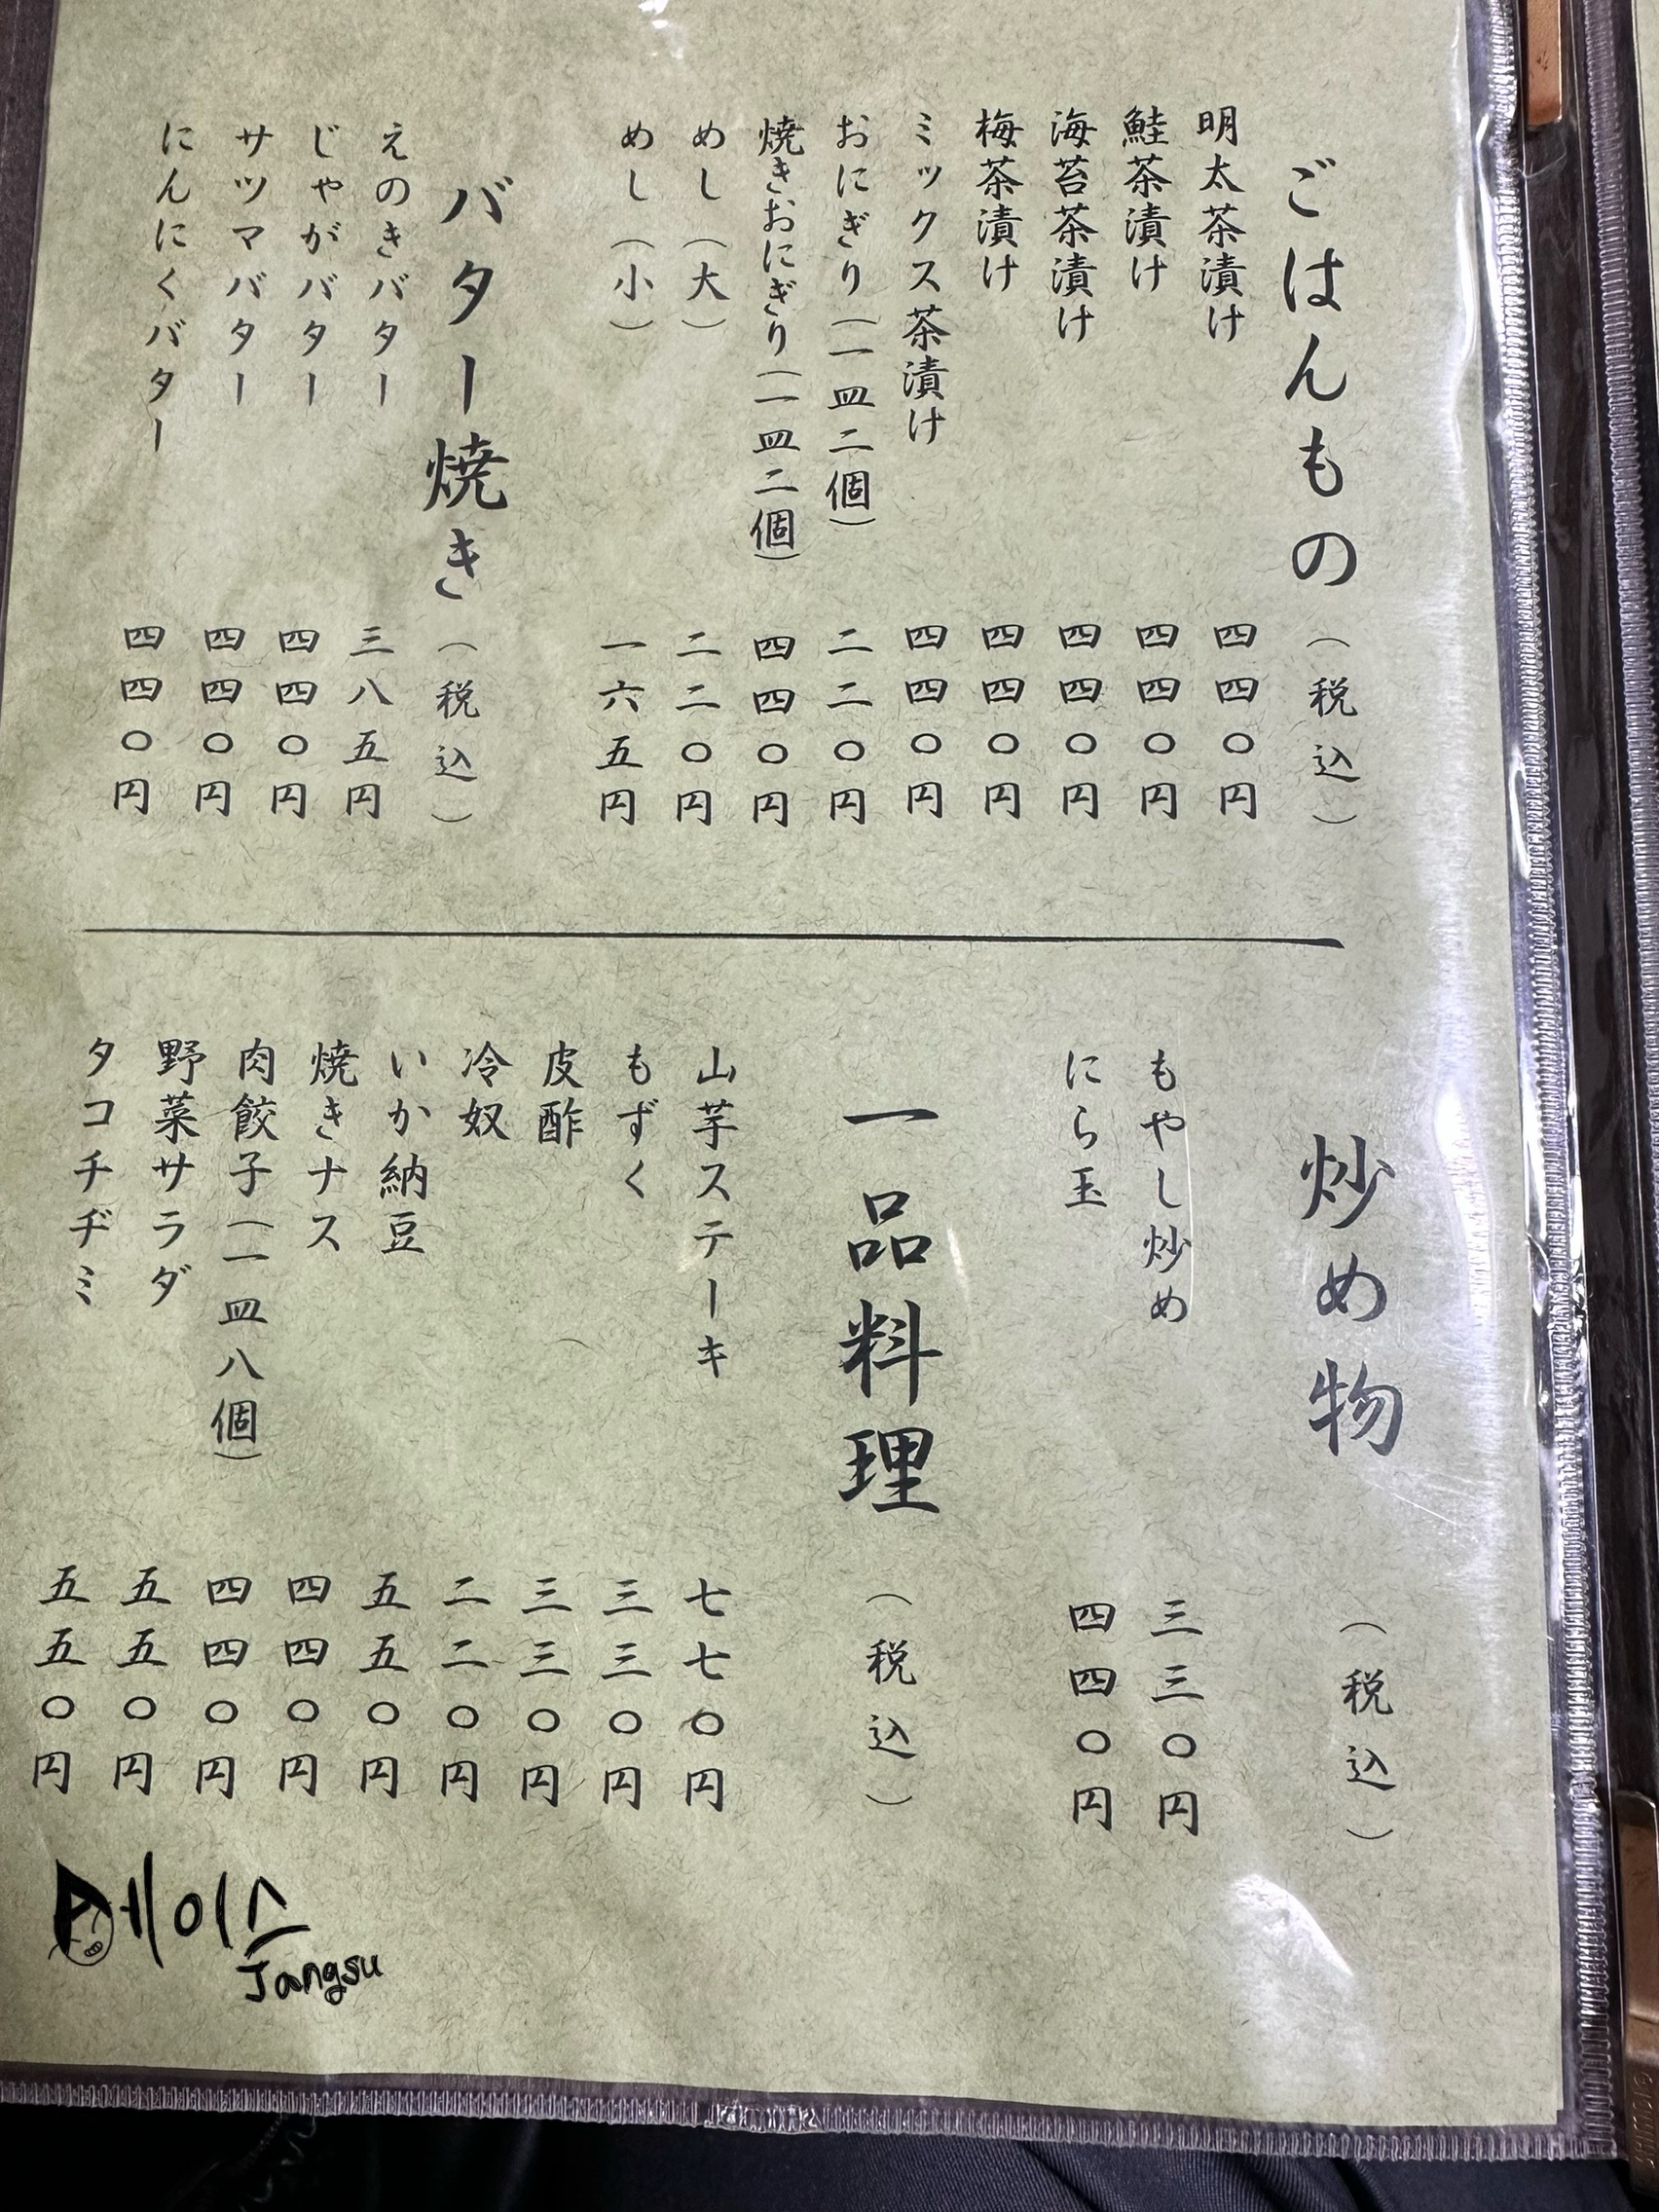 ごはんもの（税込）
明太茶漬け 四四〇円
鮭茶漬け 四四〇円
海苔茶漬け 四四〇円
梅茶漬け 四四〇円
ミックス茶漬け 四四〇円
おにぎり（一皿二個） 二二〇円
焼きおにぎり（一皿二個） 四四〇円
めし（大） 二二〇円
めし（小） 一六五円
バター焼き（税込）
えのきバター 三八五円
じゃがバター 四四〇円
サツマバター 四四〇円
にんにくバター 四四〇円
炒め物（税込）
もやし炒め 三三〇円
にら玉 四四〇円
一品料理（税込）
山芋ステーキ 七七〇円
もずく 三三〇円
皮酢 三三〇円
冷奴 二二〇円
いか納豆 五五〇円
焼きナス 四四〇円
肉餃子（一皿八個） 四四〇円
野菜サラダ 五五〇円
タコチヂミ 五五〇円
페이스
Jangsu